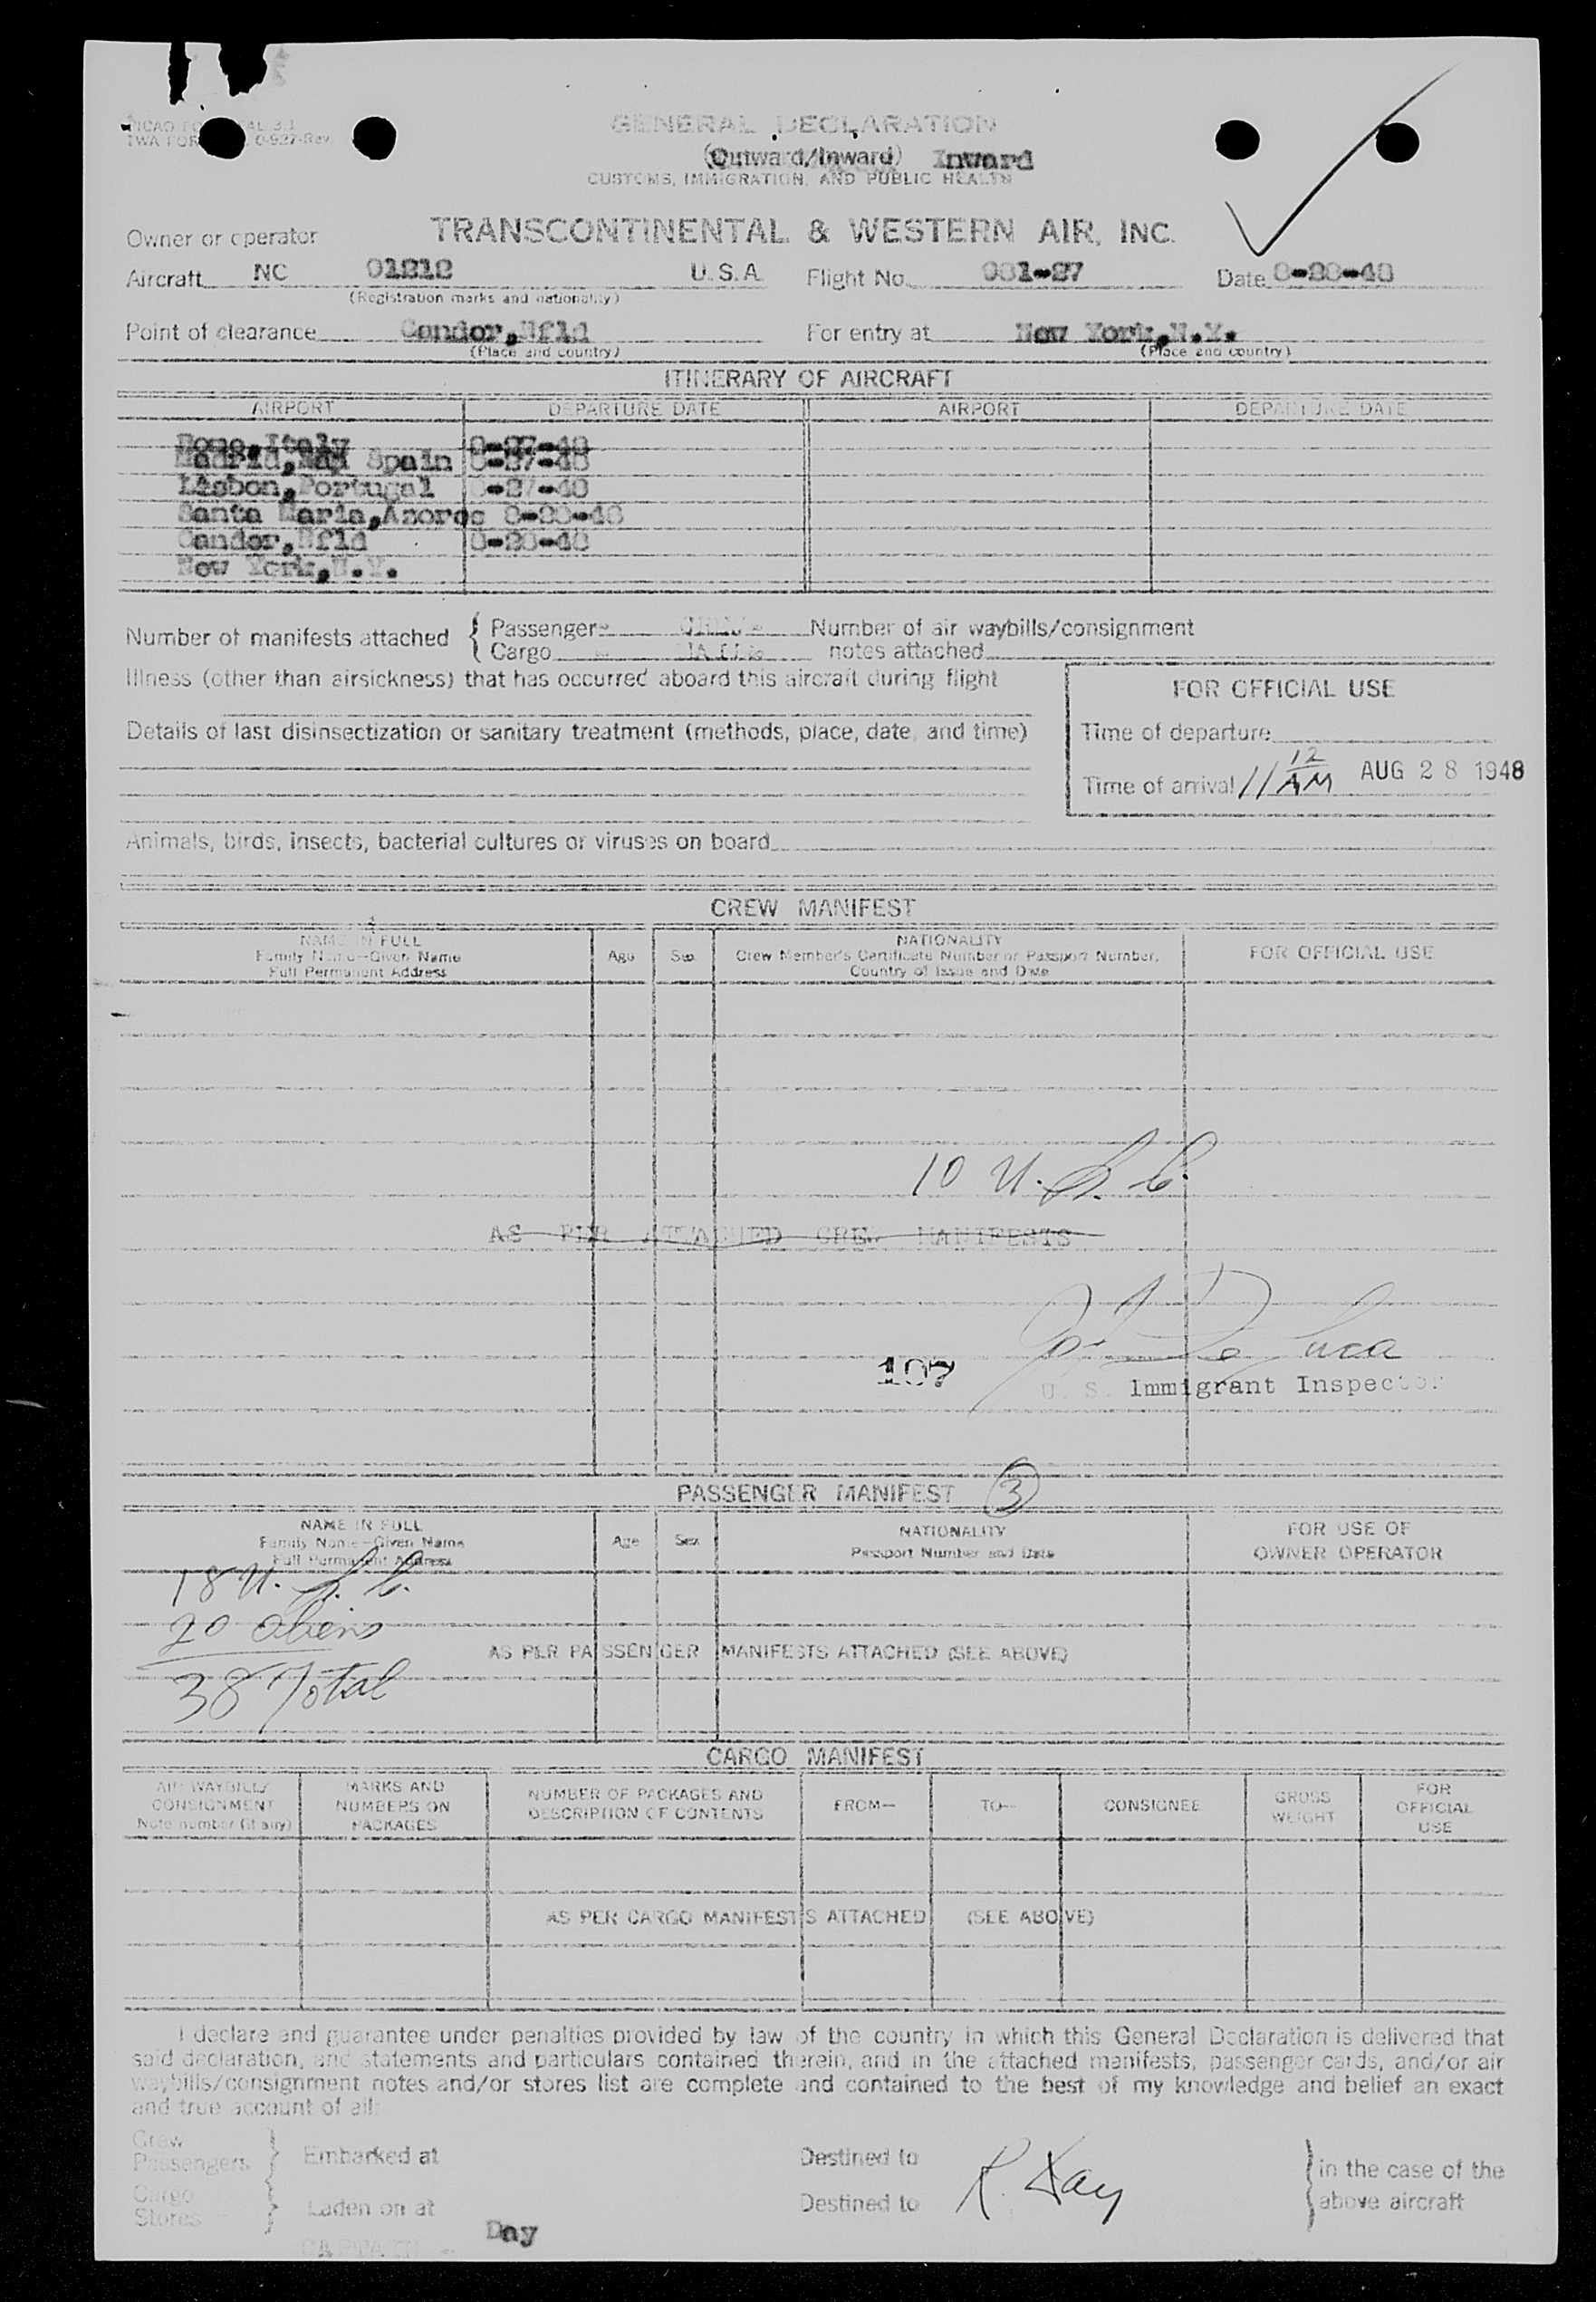 GENERAL DECLARATION
(Outward/Inward) Inward
CUSTOMS, IMMIGRATION, AND PUBLIC HEALTH
Owner or operator TRANSCONTINENTAL & WESTERN AIR, INC.
Aircraft NC 01212 U.S.A. Flight No. 931-27 Date 8-28-48
(Registration marks and nationality)
Point of clearance Gander, Nfld For entry at New York, N.Y.
(Place and country) (Place and country)
ITINERARY OF AIRCRAFT
AIRPORT DEPARTURE DATE AIRPORT DEPARTURE DATE
Rome, Italy 8-27-48
Madrid, Spain 8-27-48
Lisbon, Portugal 8-27-48
Santa Maria, Azores 8-28-48
Gander, Nfld 8-28-48
New York, N.Y.
Number of manifests attached { Passenger Number of air waybills/consignment
Cargo notes attached
Illness (other than airsickness) that has occurred aboard this aircraft during flight
FOR OFFICIAL USE
Details of last disinsectization or sanitary treatment (methods, place, date, and time)
Time of departure
Time of arrival 11 12 AM AUG 28 1948
Animals, birds, insects, bacterial cultures or viruses on board
CREW MANIFEST
NAME IN FULL
Family Name—Given Name
Full Permanent Address
Age Sex
NATIONALITY
Crew Member's Certificate Number or Passport Number,
Country of Issue and Date
FOR OFFICIAL USE
10 U.S.C.
AS PER ATTACHED CREW MANIFESTS
107
U. S. Immigrant Inspector
PASSENGER MANIFEST 3
NAME IN FULL
Family Name—Given Name
Full Permanent Address
Age Sex
NATIONALITY
Passport Number and Date
FOR USE OF
OWNER OPERATOR
18 U.S.C.
20 aliens
38 Total
AS PER PASSENGER MANIFESTS ATTACHED (SEE ABOVE)
CARGO MANIFEST
AIR WAYBILLS/
CONSIGNMENT
Note number (if any)
MARKS AND
NUMBERS ON
PACKAGES
NUMBER OF PACKAGES AND
DESCRIPTION OF CONTENTS
FROM— TO— CONSIGNEE
GROSS
WEIGHT
FOR
OFFICIAL
USE
AS PER CARGO MANIFESTS ATTACHED (SEE ABOVE)
I declare and guarantee under penalties provided by law of the country in which this General Declaration is delivered that
said declaration, and statements and particulars contained therein, and in the attached manifests, passenger cards, and/or air
waybills/consignment notes and/or stores list are complete and contained to the best of my knowledge and belief an exact
and true account of all:
Crew
Passengers } Embarked at Destined to
Cargo
Stores } Laden on at Destined to
R. Day
in the case of the
above aircraft
Day